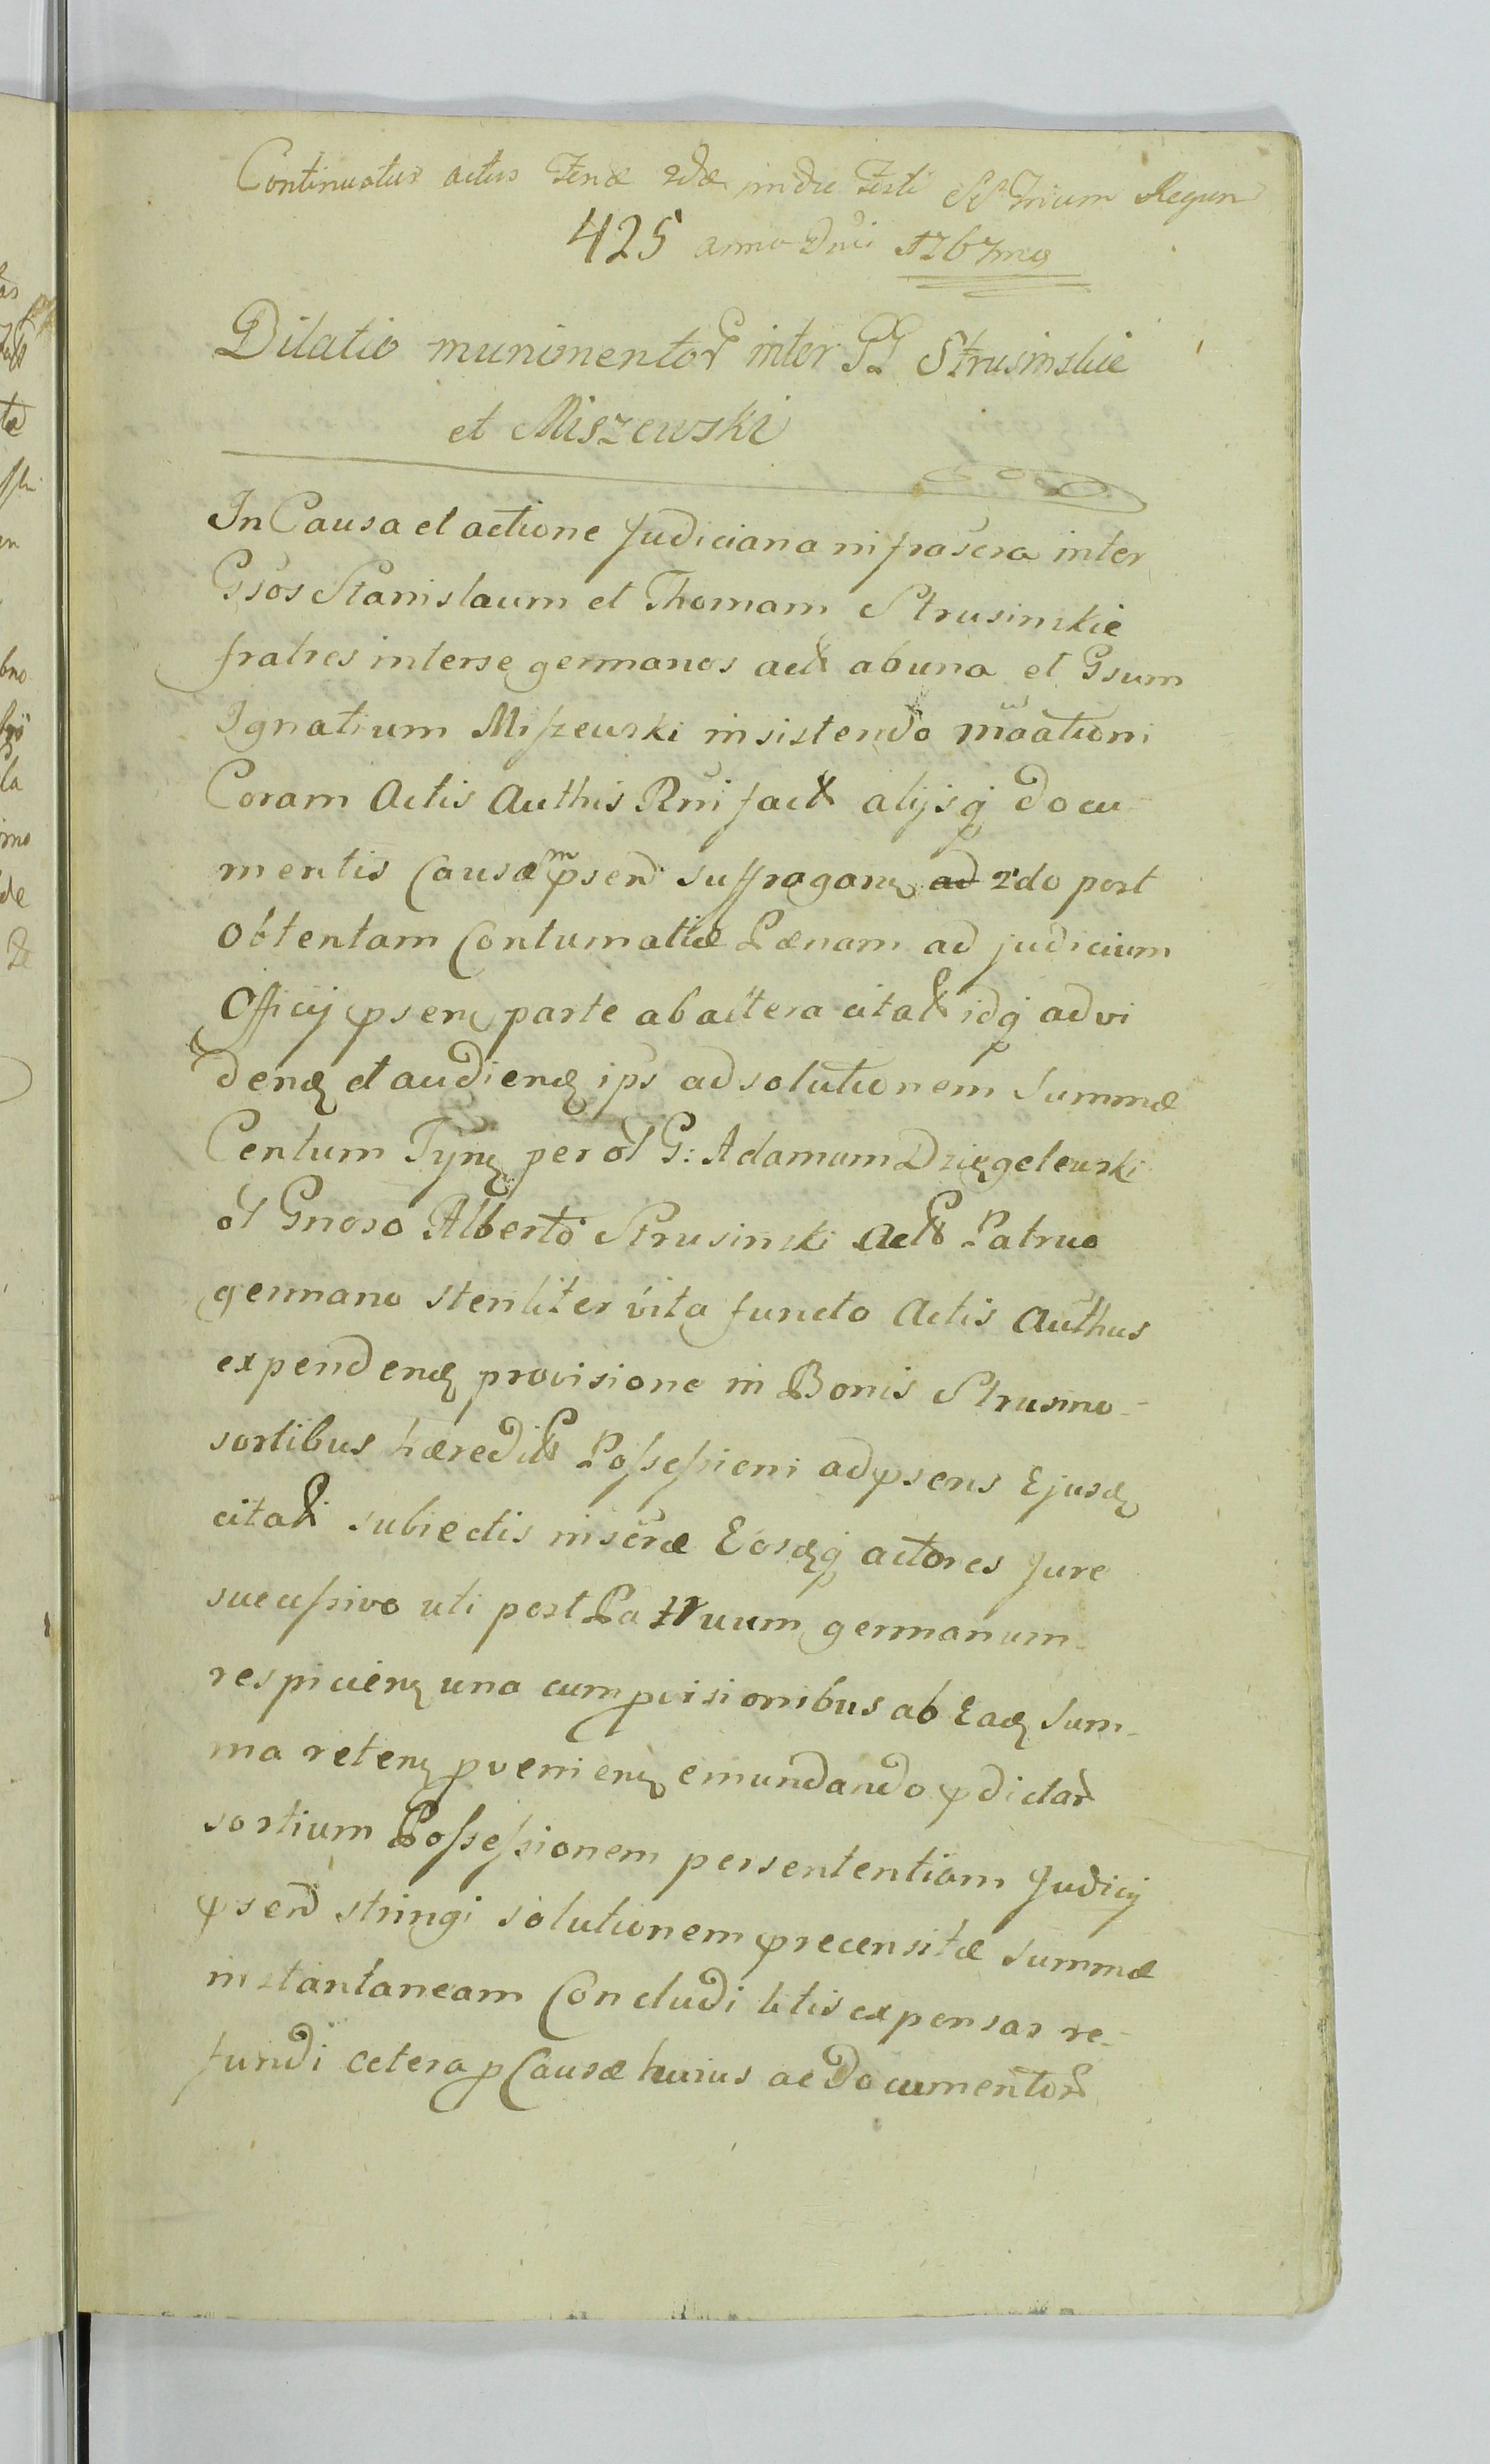 Continuatur actus Feriæ 2dæ in die Festi SS. Trium Regum
425 anno Dni 1767mo
Dilatio munimentor inter GG Strusinskie
et Miszewski
In Causa et actione Judiciaria infrascra inter
Gsos Stanislaum et Thomam Strusinskie
fratres interse germanos act ab una et Gsum
Ignatium Miszewski insistendo
Coram Actis Authis Rni fact alijsq docu-
mentis Causam psen suffragan 2do post
obtentam Contumatiæ Pænam ad judicium
Officij psen parte ab altera citat idq ad vi
den et audien ips ad solutionem Summæ
Centum Tyn per ol G: Adamum Dzięgelewski
ol Gnoso Alberto Strusinski Act Patruo
germano steriliter vita functo Actis Authus
expenden provisione in Bonis Strusino-
sortibus hæredit Possessioni ad psens Ejusd
citati subiectis inscræ Eosdq actores Jure
sucessivo uti post Patruum germanum
respicien una cum pvisionibus ab Ead Sum-
ma reten pvenien emundando pdictar
sortium Possessionem per sententiam Judicij
psen stringi solutionem precensitæ Summæ
instantaneam Concludi litis expensas re-
fundi cetera p Causæ huius ac Documentor